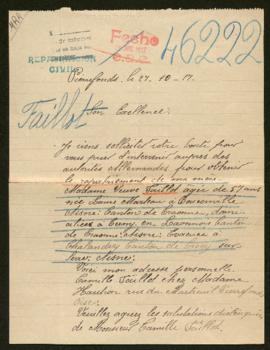 RAPATRIACION
CIVIL
46222
Pierrefonds, le 27-10-17
Taillot
Son Excellence
Je viens solliciter votre bonté pour
vous prier d'intervenir auprès des
autorités allemandes pour obtenir
le rapatriement de ma mère
Madame Veuve Taillot agée de 57 ans
née Laure
Aisne. Canton de Craonne,
en
de Craonne Aisne. Evacuée à
Chalandry Canton de Crecy sur
Serre, Aisne.
Voici mon adresse personnelle
Camille Taillot chez Madame
rue du Pierrefonds
Oise.
Veuillez agréer les salutations distinguées
de Monsieur Camille Taillot.